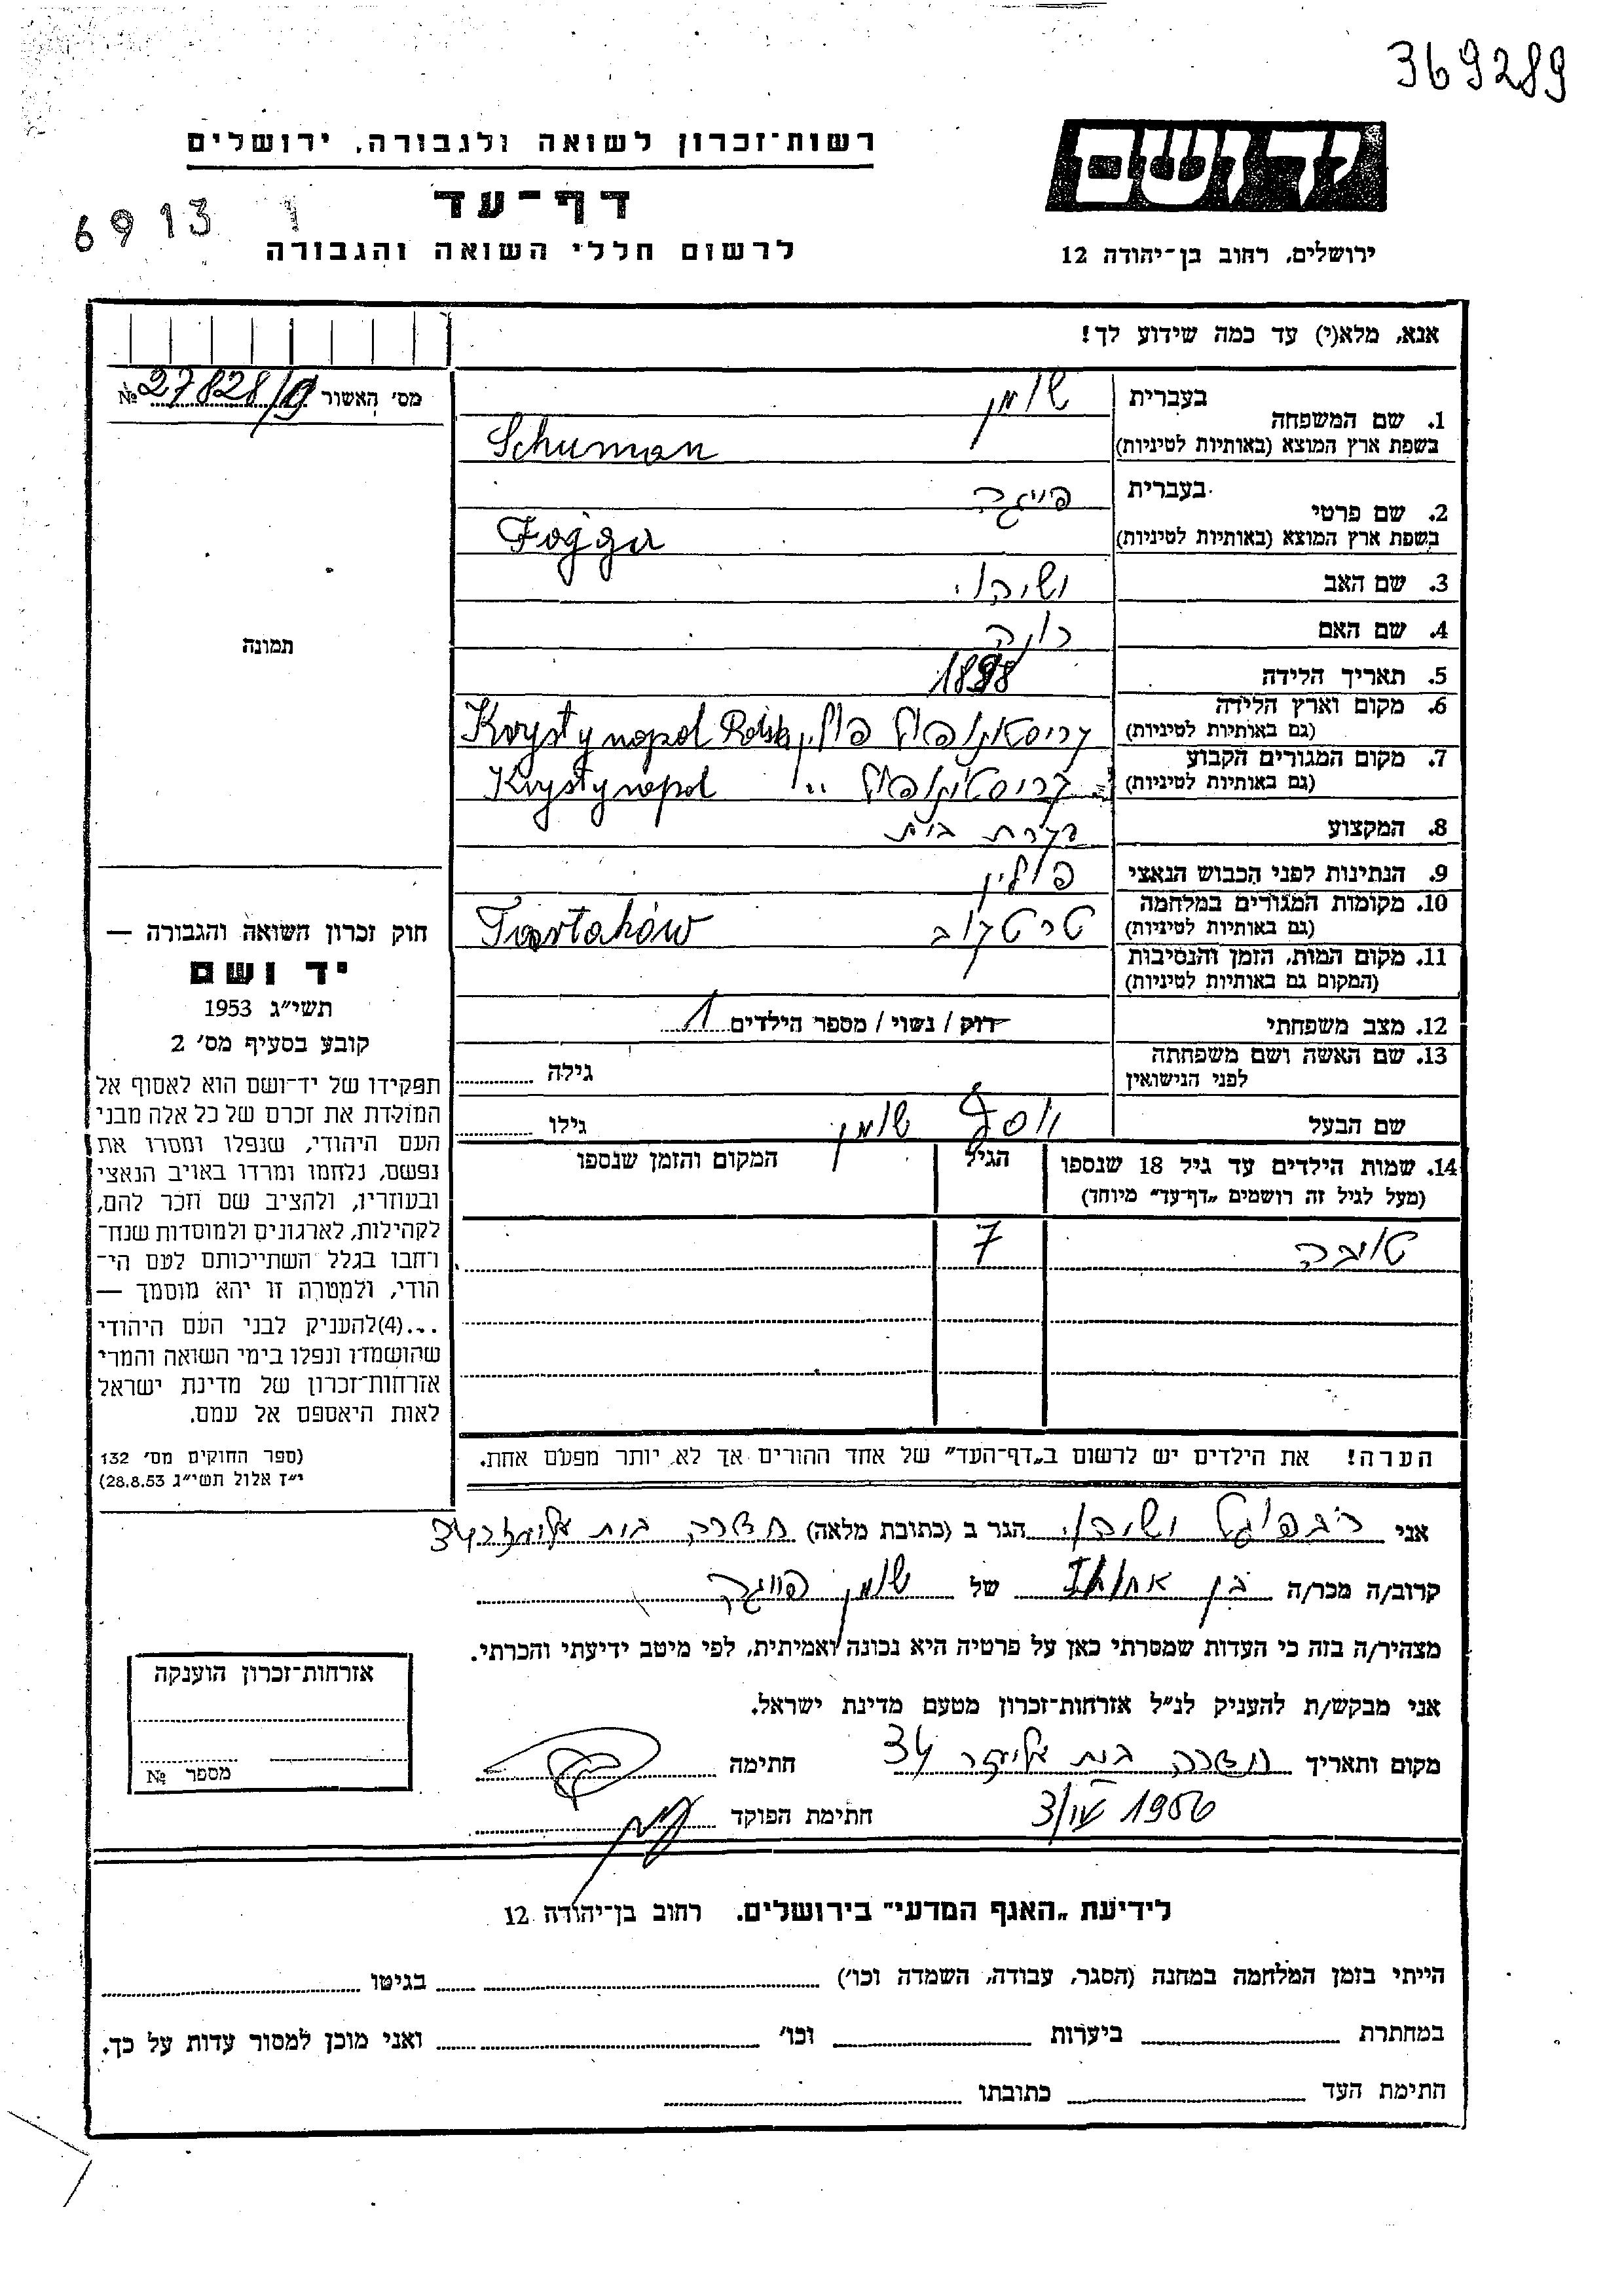 369289
יד ושם
רשות-זכרון לשואה ולגבורה, ירושלים
דף-עד
6913
לרשום חללי השואה והגבורה
ירושלים, רחוב בן-יהודה 12
אנא, מלא(י) עד כמה שידוע לך!
מס' האשור № 27828/
1. שם המשפחה בעברית שומן
בשפת ארץ המוצא (באותיות לטיניות) Schuman
2. שם פרטי בעברית פייגה
בשפת ארץ המוצא (באותיות לטיניות) Fogga
3. שם האב
4. שם האם
5. תאריך הלידה 1898
6. מקום וארץ הלידה (גם באותיות לטיניות) קריסטינופול פולין Krystynopol Polska
7. מקום המגורים הקבוע (גם באותיות לטיניות) קריסטינופול " Krystynopol
8. המקצוע עקרת בית
9. הנתינות לפני הכבוש הנאצי פולין
10. מקומות המגורים במלחמה (גם באותיות לטיניות) טרטקוב Tartaków
11. מקום המות, הזמן והנסיבות (המקום גם באותיות לטיניות)
12. מצב משפחתי רוק / נשוי / מספר הילדים 1
13. שם האשה ושם משפחתה לפני הנישואין גילה
שם הבעל יוסף שומן גילו
14. שמות הילדים עד גיל 18 שנספו הגיל המקום והזמן שנספו
(מעל לגיל זה רושמים „דף-עד" מיוחד)
טובה 7
הערה! את הילדים יש לרשום ב„דף-העד" של אחד ההורים אך לא יותר מפעם אחת.
תמונה
חוק זכרון השואה והגבורה —
יד ושם
תשי"ג 1953
קובע בסעיף מס' 2
תפקידו של יד-ושם הוא לאסוף אל
המולדת את זכרם של כל אלה מבני
העם היהודי, שנפלו ומסרו את
נפשם, נלחמו ומרדו באויב הנאצי
ובעוזריו, ולהציב שם וזכר להם,
לקהילות, לארגונים ולמוסדות שנח-
רחבו בגלל השתייכותם לעם הי-
הודי, ולמטרה זו יהא מוסמך —
...(4)להעניק לבני העם היהודי
שהושמדו ונפלו בימי השואה והמרי
אזרחות-זכרון של מדינת ישראל
לאות היאספם אל עמם.
(ספר החוקים מס' 132
י"ז אלול תשי"ג 28.8.53)
אני הגר ב (כתובת מלאה) חדרה בית אליעזר 34
קרוב/ה מכר/ה בן של שומן פייגה
מצהיר/ה בזה כי העדות שמסרתי כאן על פרטיה היא נכונה ואמיתית, לפי מיטב ידיעתי והכרתי.
אני מבקש/ת להעניק לנ"ל אזרחות-זכרון מטעם מדינת ישראל.
מקום ותאריך חדרה בית אליעזר 34 חתימה
1956 חתימת הפוקד
אזרחות-זכרון הוענקה
מספר №
לידיעת „האגף המדעי" בירושלים, רחוב בן-יהודה 12
הייתי בזמן המלחמה במחנה (הסגר, עבודה, השמדה וכו') בגיטו
במחתרת ביערות וכו' ואני מוכן למסור עדות על כך.
חתימת העד כתובתו